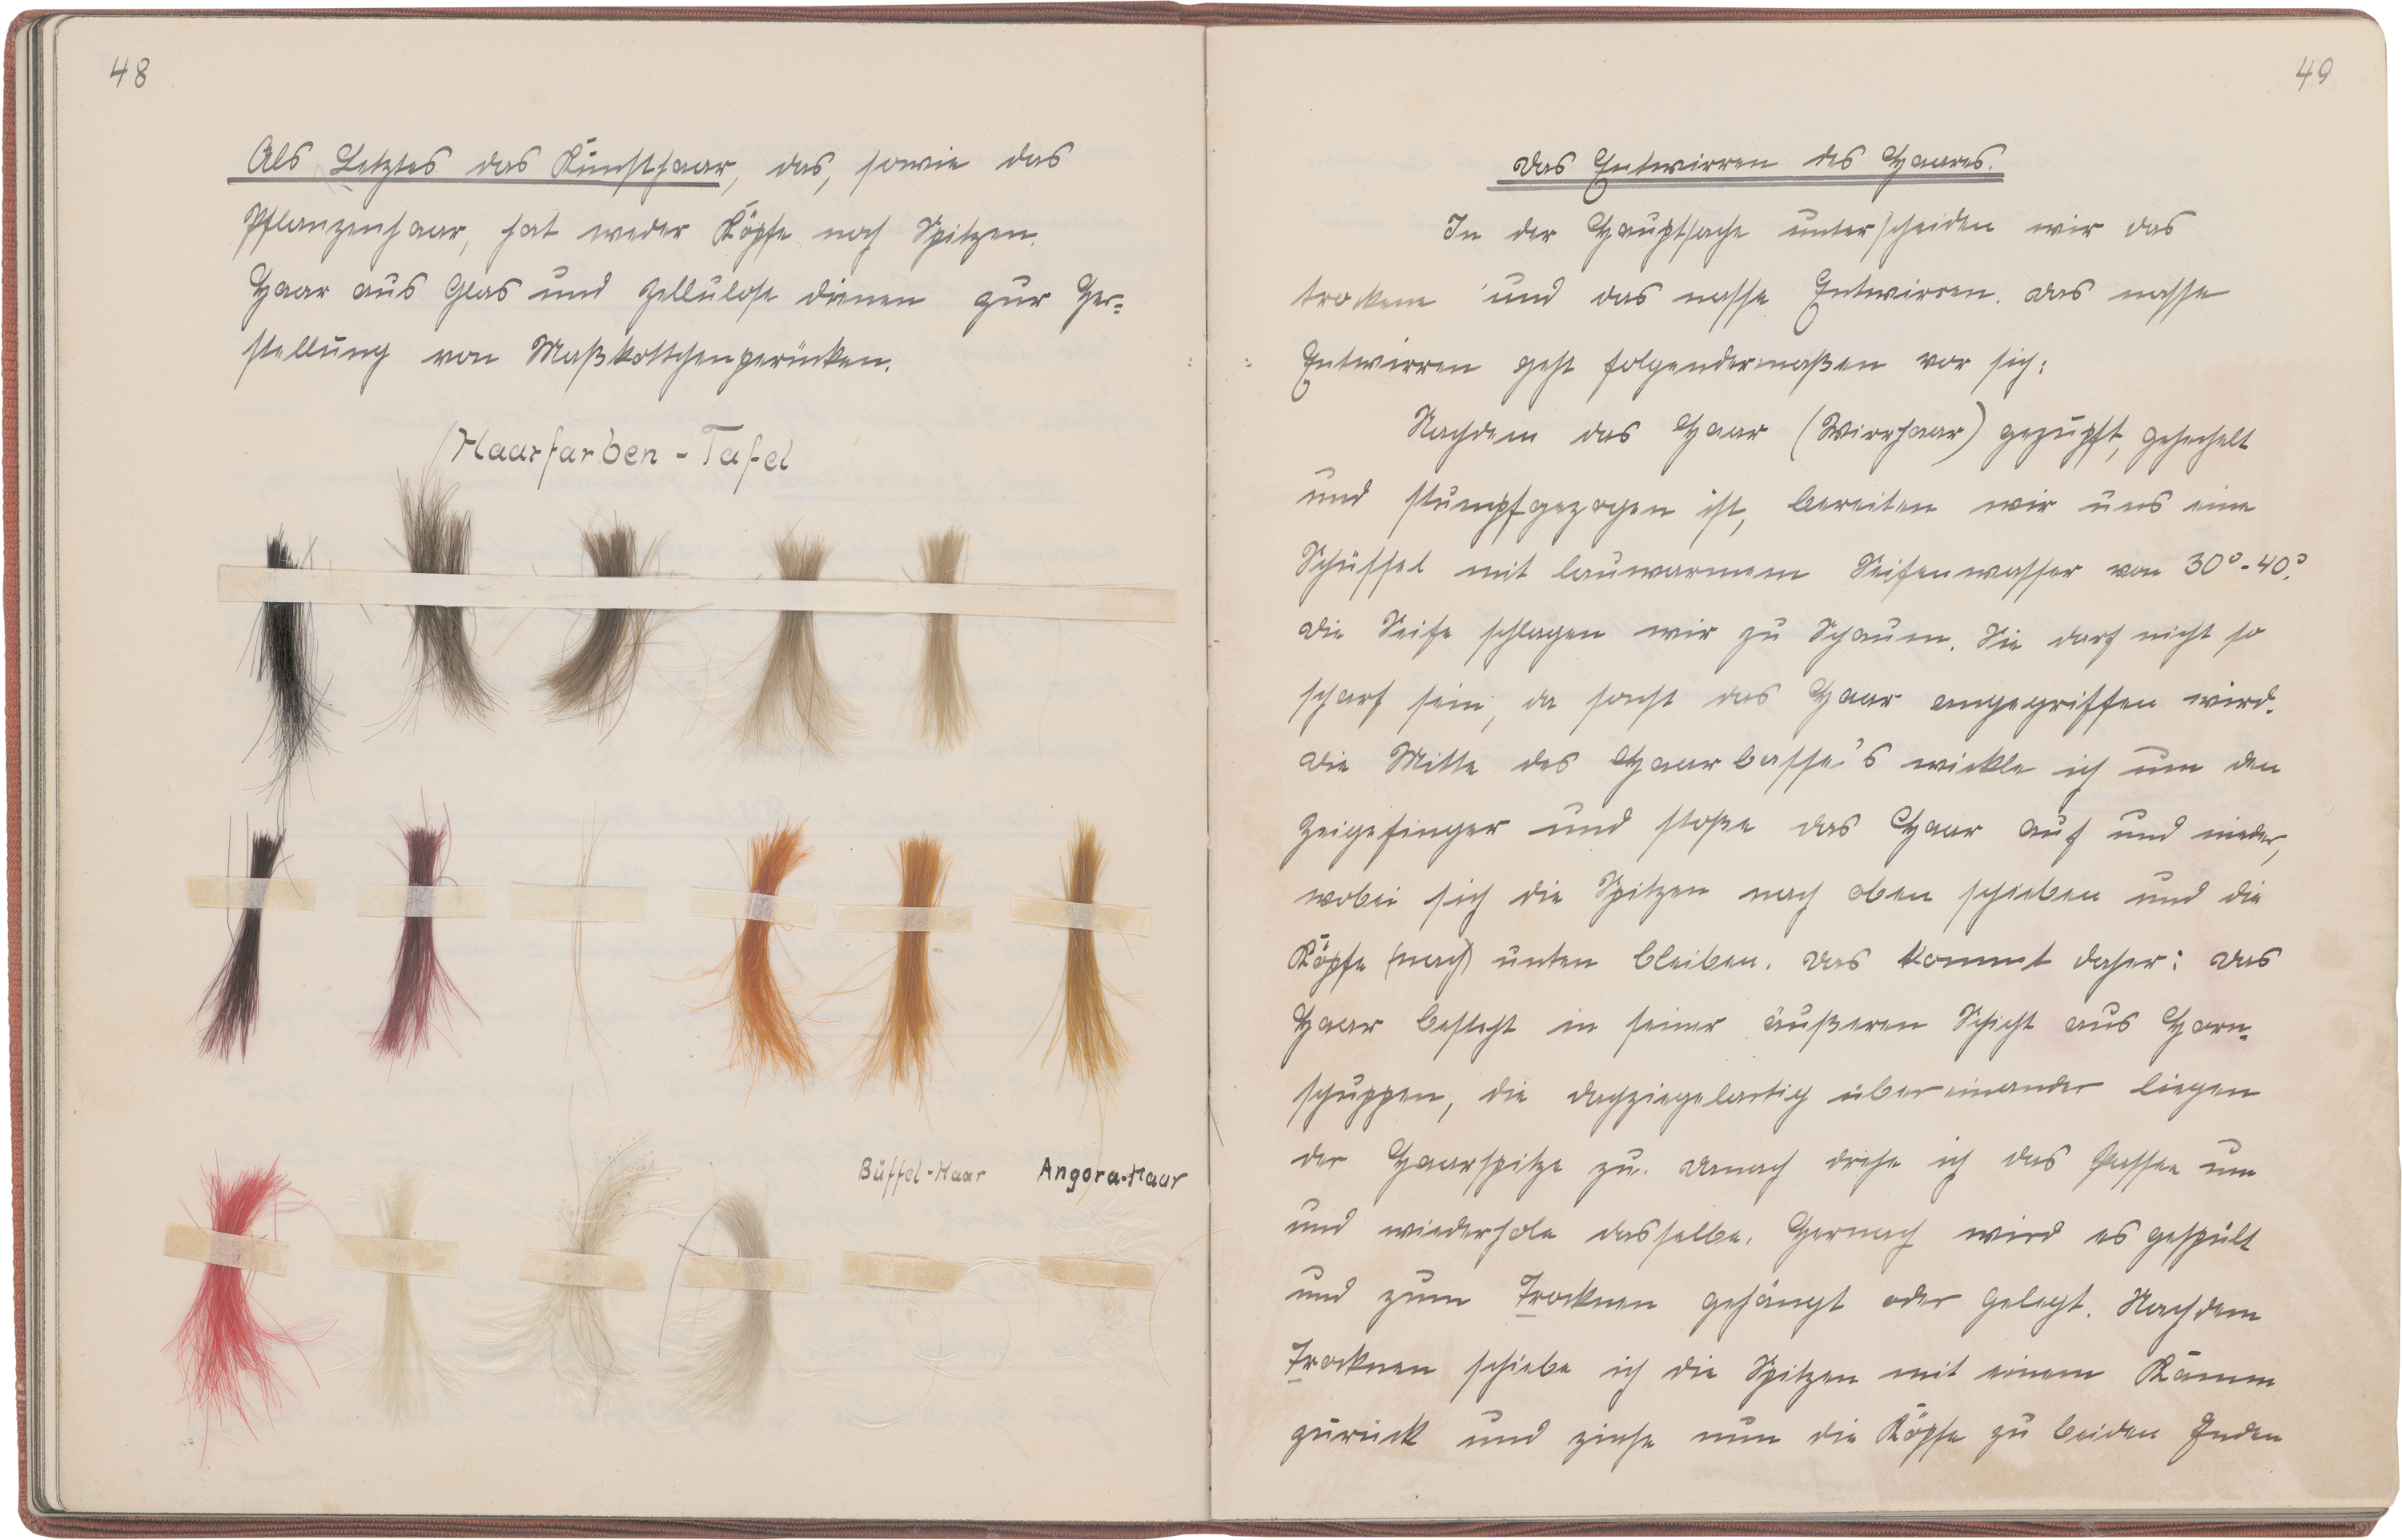 48
Als Letztes das Kunsthaar, das, sowie das
Pflanzenhaar, hat weder Köpfe noch Spitzen.
Haar aus Glas und Zellulose dienen zur Her=
stellung von Maßkottchenperücken.
Haarfarben-Tafel
Büffel-Haar Angora-Haar
49
Das Entwirren des Haares.
In der Hauptsache unterscheiden wir das
trockene und das nasse Entwirren. Das nasse
Entwirren geht folgendermaßen vor sich:
Nachdem das Haar (Wirrhaar) gezupft, gehechelt
und stumpfgezogen ist, bereiten wir uns eine
Schüssel mit lauwarmem Seifenwasser von 30°-40°.
Die Seife schlagen wir zu Schaum. Sie darf nicht so
scharf sein, da sonst das Haar angegriffen wird.
Die Mitte des Haarbasse's wickle ich um den
Zeigefinger und stoße das Haar auf und nieder,
wobei sich die Spitzen nach oben schieben und die
Köpfe (nach) unten bleiben. Das kommt daher: Das
Haar besteht in seiner äußeren Schicht aus Horn=
schuppen, die dachziegelartig übereinander liegen
der Haarspitze zu. Danach drehe ich das Passee um
und wiederhole dasselbe. Hernach wird es gespült
und zum Trocknen gehängt oder gelegt. Nachdem
Trocknen schiebe ich die Spitzen mit einem Kamm
zurück und ziehe nun die Köpfe zu beiden Enden